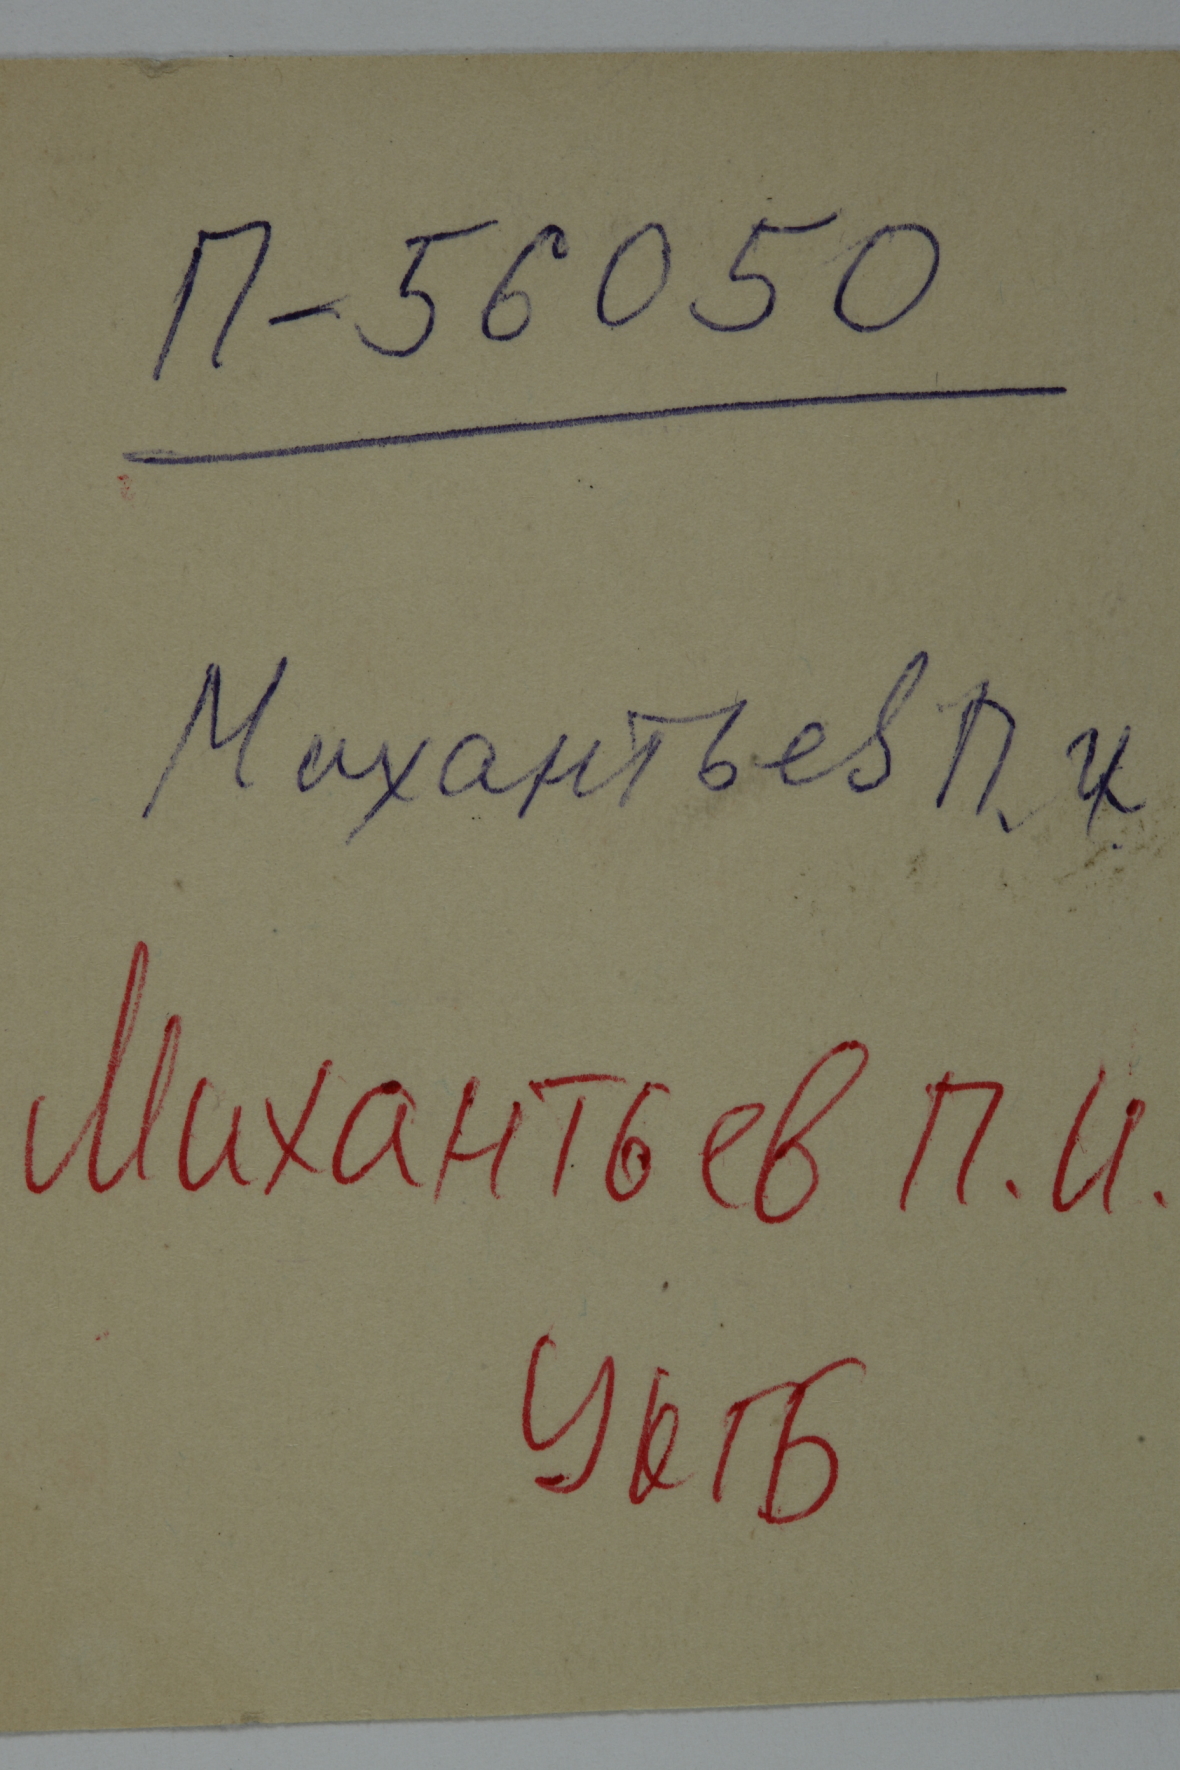 П-56050
Михантьев П. И.
Михантьев П. И.
УКГБ